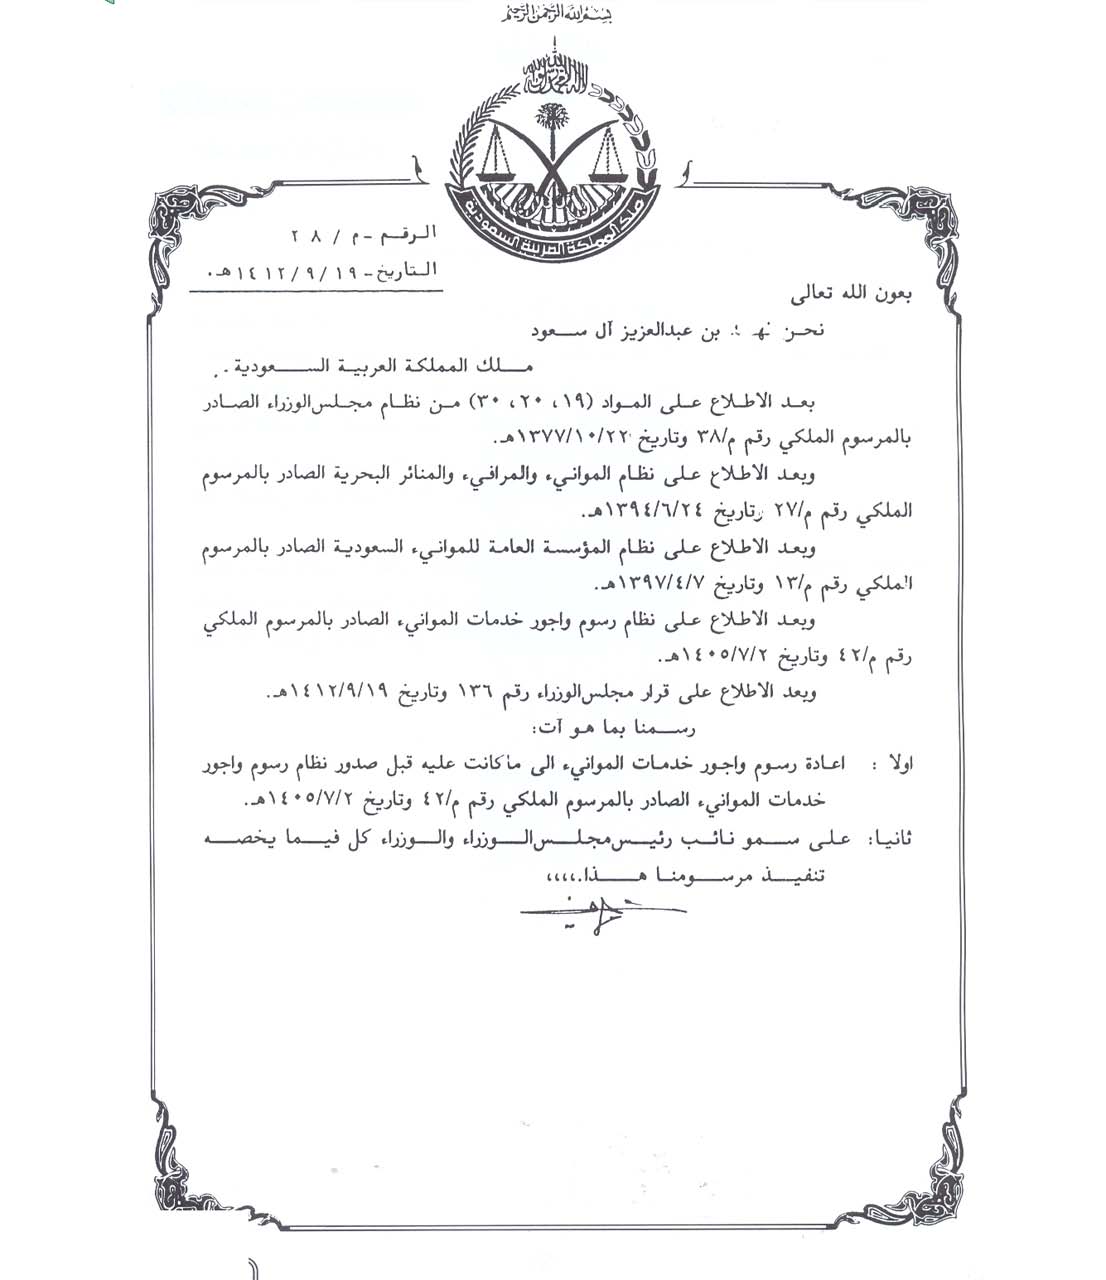 بسم الله الرحمن الرحيم
لا إله إلا الله محمد رسول الله
ملك المملكة العربية السعودية
الرقم - م / ٢٨
التاريخ - ١٤١٢/٩/١٩هـ.
بعون الله تعالى
نحن فهد بن عبدالعزيز آل سعود
ملك المملكة العربية السعودية -
بعد الاطلاع على المواد (١٩، ٢٠، ٣٠) من نظام مجلس الوزراء الصادر
بالمرسوم الملكي رقم م/٣٨ وتاريخ ١٣٧٧/١٠/٢٢هـ.
وبعد الاطلاع على نظام الموانيء والمرافيء والمنائر البحرية الصادر بالمرسوم
الملكي رقم م/٢٧ وتاريخ ١٣٩٤/٦/٢٤هـ.
وبعد الاطلاع على نظام المؤسسة العامة للموانيء السعودية الصادر بالمرسوم
الملكي رقم م/١٣ وتاريخ ١٣٩٧/٤/٧هـ.
وبعد الاطلاع على نظام رسوم واجور خدمات الموانيء الصادر بالمرسوم الملكي
رقم م/٤٢ وتاريخ ١٤٠٥/٧/٢هـ.
وبعد الاطلاع على قرار مجلس الوزراء رقم ١٣٦ وتاريخ ١٤١٢/٩/١٩هـ.
رسمنا بما هو آت:
اولا : اعادة رسوم واجور خدمات الموانيء الى ماكانت عليه قبل صدور نظام رسوم واجور
خدمات الموانيء الصادر بالمرسوم الملكي رقم م/٤٢ وتاريخ ١٤٠٥/٧/٢هـ.
ثانيا: على سمو نائب رئيس مجلس الوزراء والوزراء كل فيما يخصه
تنفيذ مرسومنا هذا.،،،،